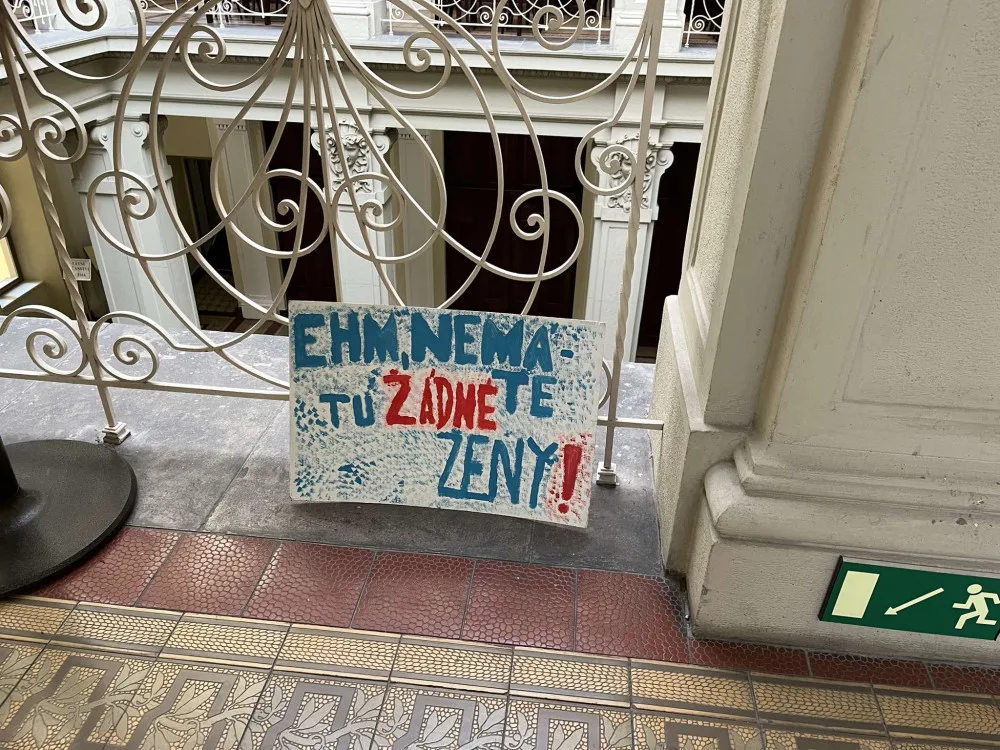 EHM, NEMÁ-
TU ŽÁDNÉ TE
ŽENY!